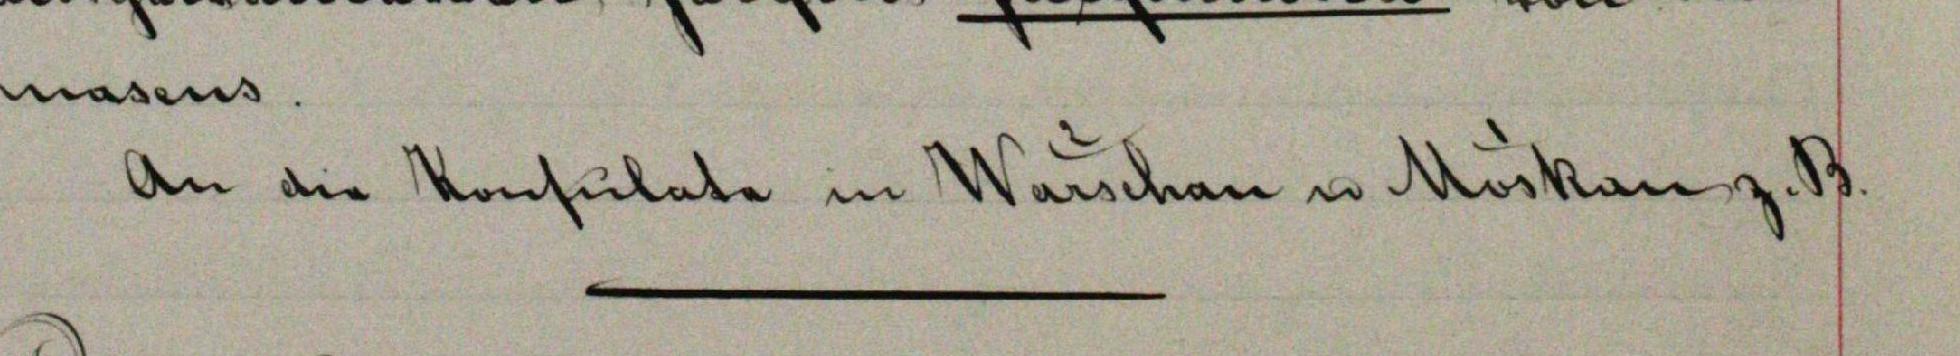 masens.
An die Konsulate in Warschau u Moskau z. B.